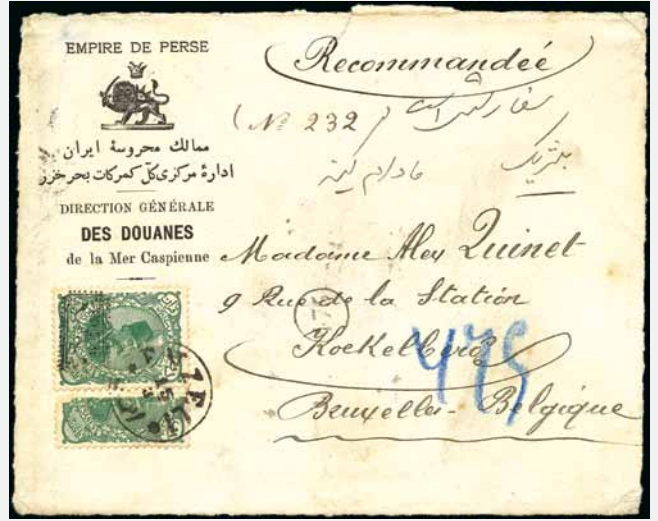 EMPIRE DE PERSE
ممالك محروسهٔ ایران
ادارهٔ مرکزی کلّ کمرکات بحر خزر
DIRECTION GÉNÉRALE
DES DOUANES
de la Mer Caspienne
Recommandée
سفارشی است
(No 232)
بلژیک
مادام کینه
Madame Alex Quinet
9 Rue de la Station
Koekelberg
475
Bruxelles - Belgique